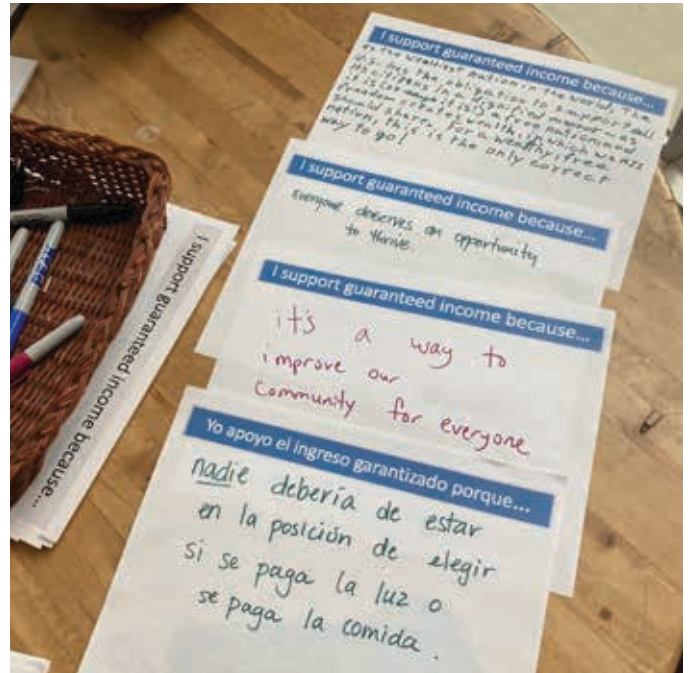 I support guaranteed income because...
As the wealthiest nation in the world, the
U.S. has the obligation to support all
its citizens in a dignified manner.
freedom
should share. For a wealthy, free
nation, this is the only correct
way to go!
I support guaranteed income because...
Everyone deserves an opportunity
to thrive.
I support guaranteed income because...
it's a way to
improve our
Community for everyone
Yo apoyo el ingreso garantizado porque...
nadie debería de estar
en la posición de elegir
si se paga la luz o
se paga la comida.
I support guaranteed income because...